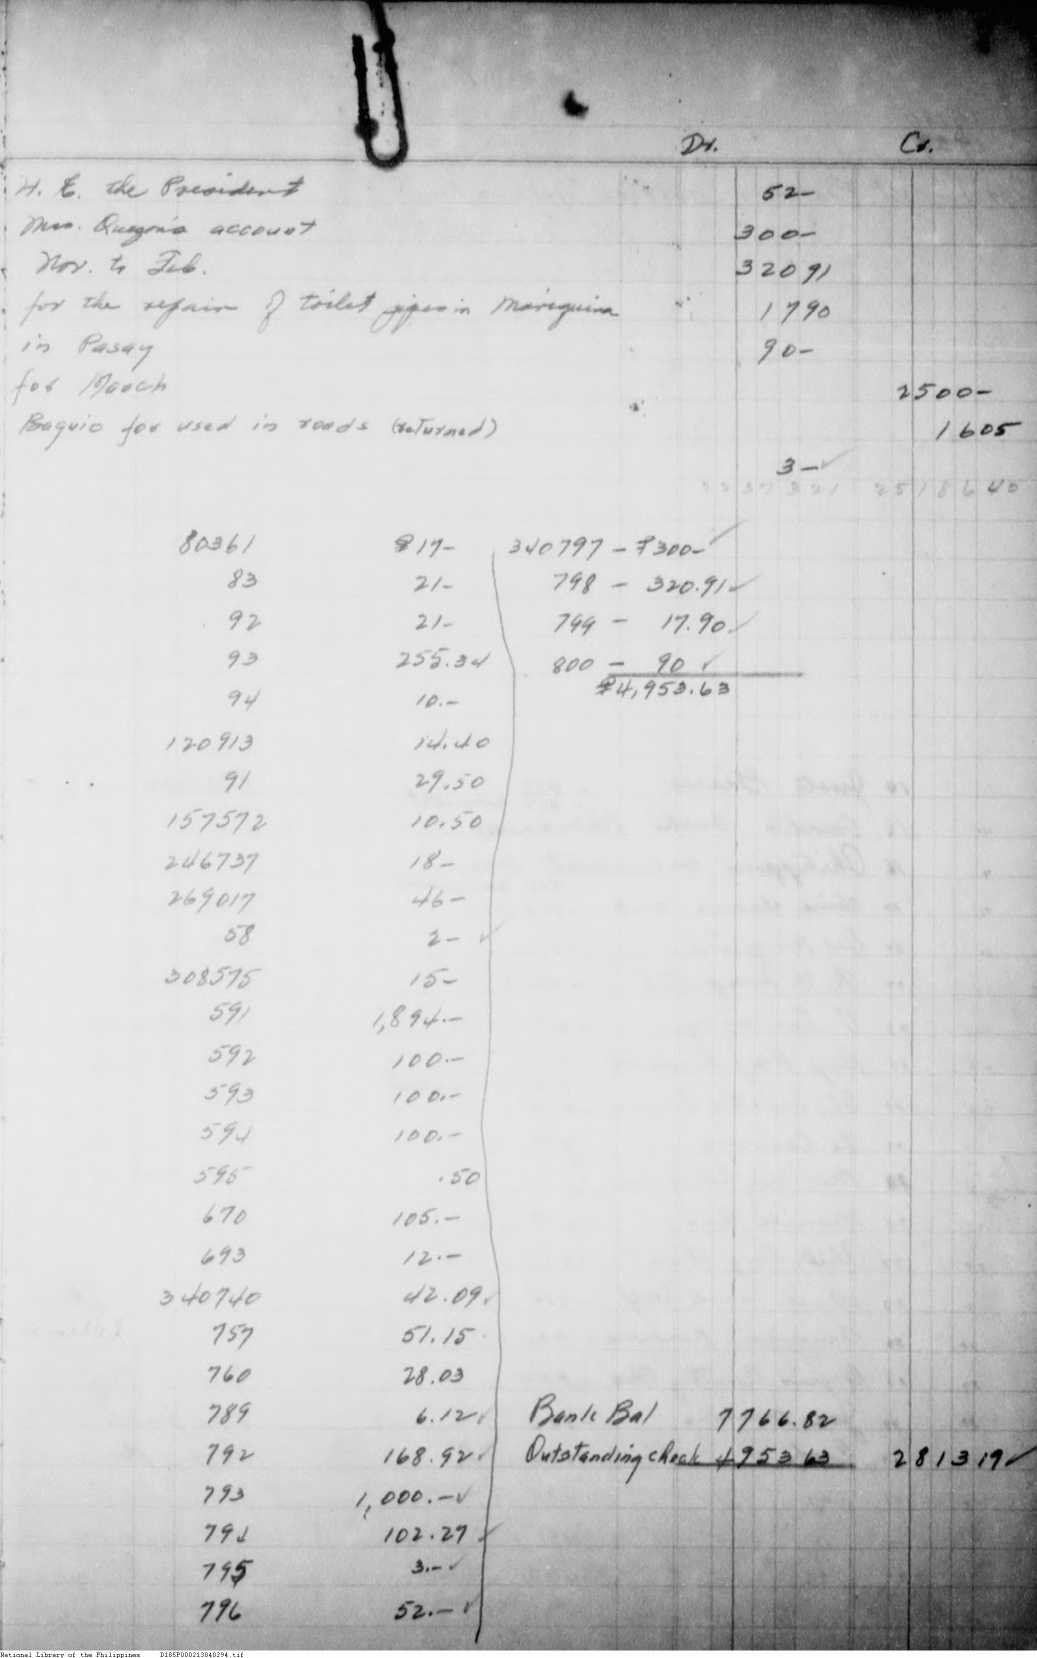 Dr. Cr.
H. E. the President 52-
Mrs. Quezon's account 300-
Nov. to Feb. 320 91
for the repair of toilet pipes in Mariquina 17 90
in Pasay 90-
for March 2500-
Baguio for used in roads (returned) 16 05
3-✓
22373 21 25186 40
80361 ₱17- 340797 - ₱300-✓
83 21- 798 - 320.91✓
92 21- 799 - 17.90✓
93 255.34 800 - 90 ✓
94 10.- ₱4,953.63
120913 14.40
91 29.50
157572 10.50
246737 18-
269017 46-
58 2- ✓
308575 15-
591 1,894.-
592 100.-
593 100.-
594 100.-
595 .50
670 105.-
693 12.-
340740 42.09✓
757 51.15
760 28.03
789 6.12✓ Bank Bal 7766.82
792 168.92✓ Outstanding check 4953 63 2813 19✓
793 1,000.-✓
794 102.27 ✓
795 3.-✓
796 52.-✓
National Library of the Philippines D185P000213040294.tif